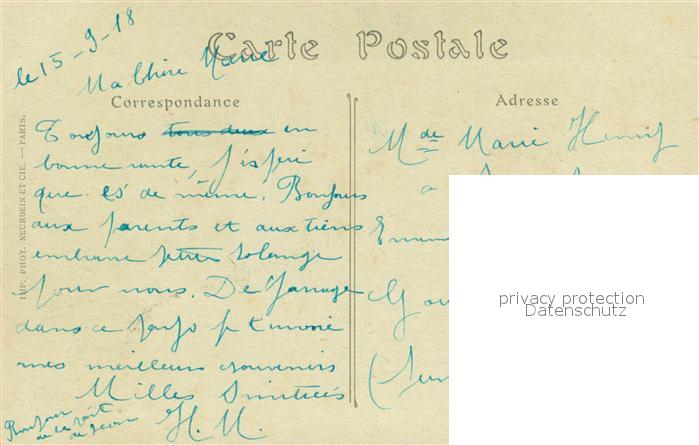 le 15-9-18
Carte Postale
Ma Chère Marie
Correspondance
Toujours tous deux en
bonne sante, j'espère
que es de même. Bonjours
aux parents et aux tiens
embrasse petite Solange
pour nous. De passage
dans ce pays je t'envoie
mes meilleurs souvenirs
Milles Amitiées
H. M.
Bonjour
de la part
de
IMP. PHOT. NEURDEIN ET CIE. — PARIS.
Adresse
Mde Marie
a
privacy protection
Datenschutz